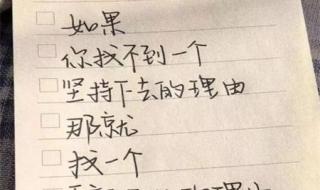 如果
你找不到一个
坚持下去的理由
那就
找一个